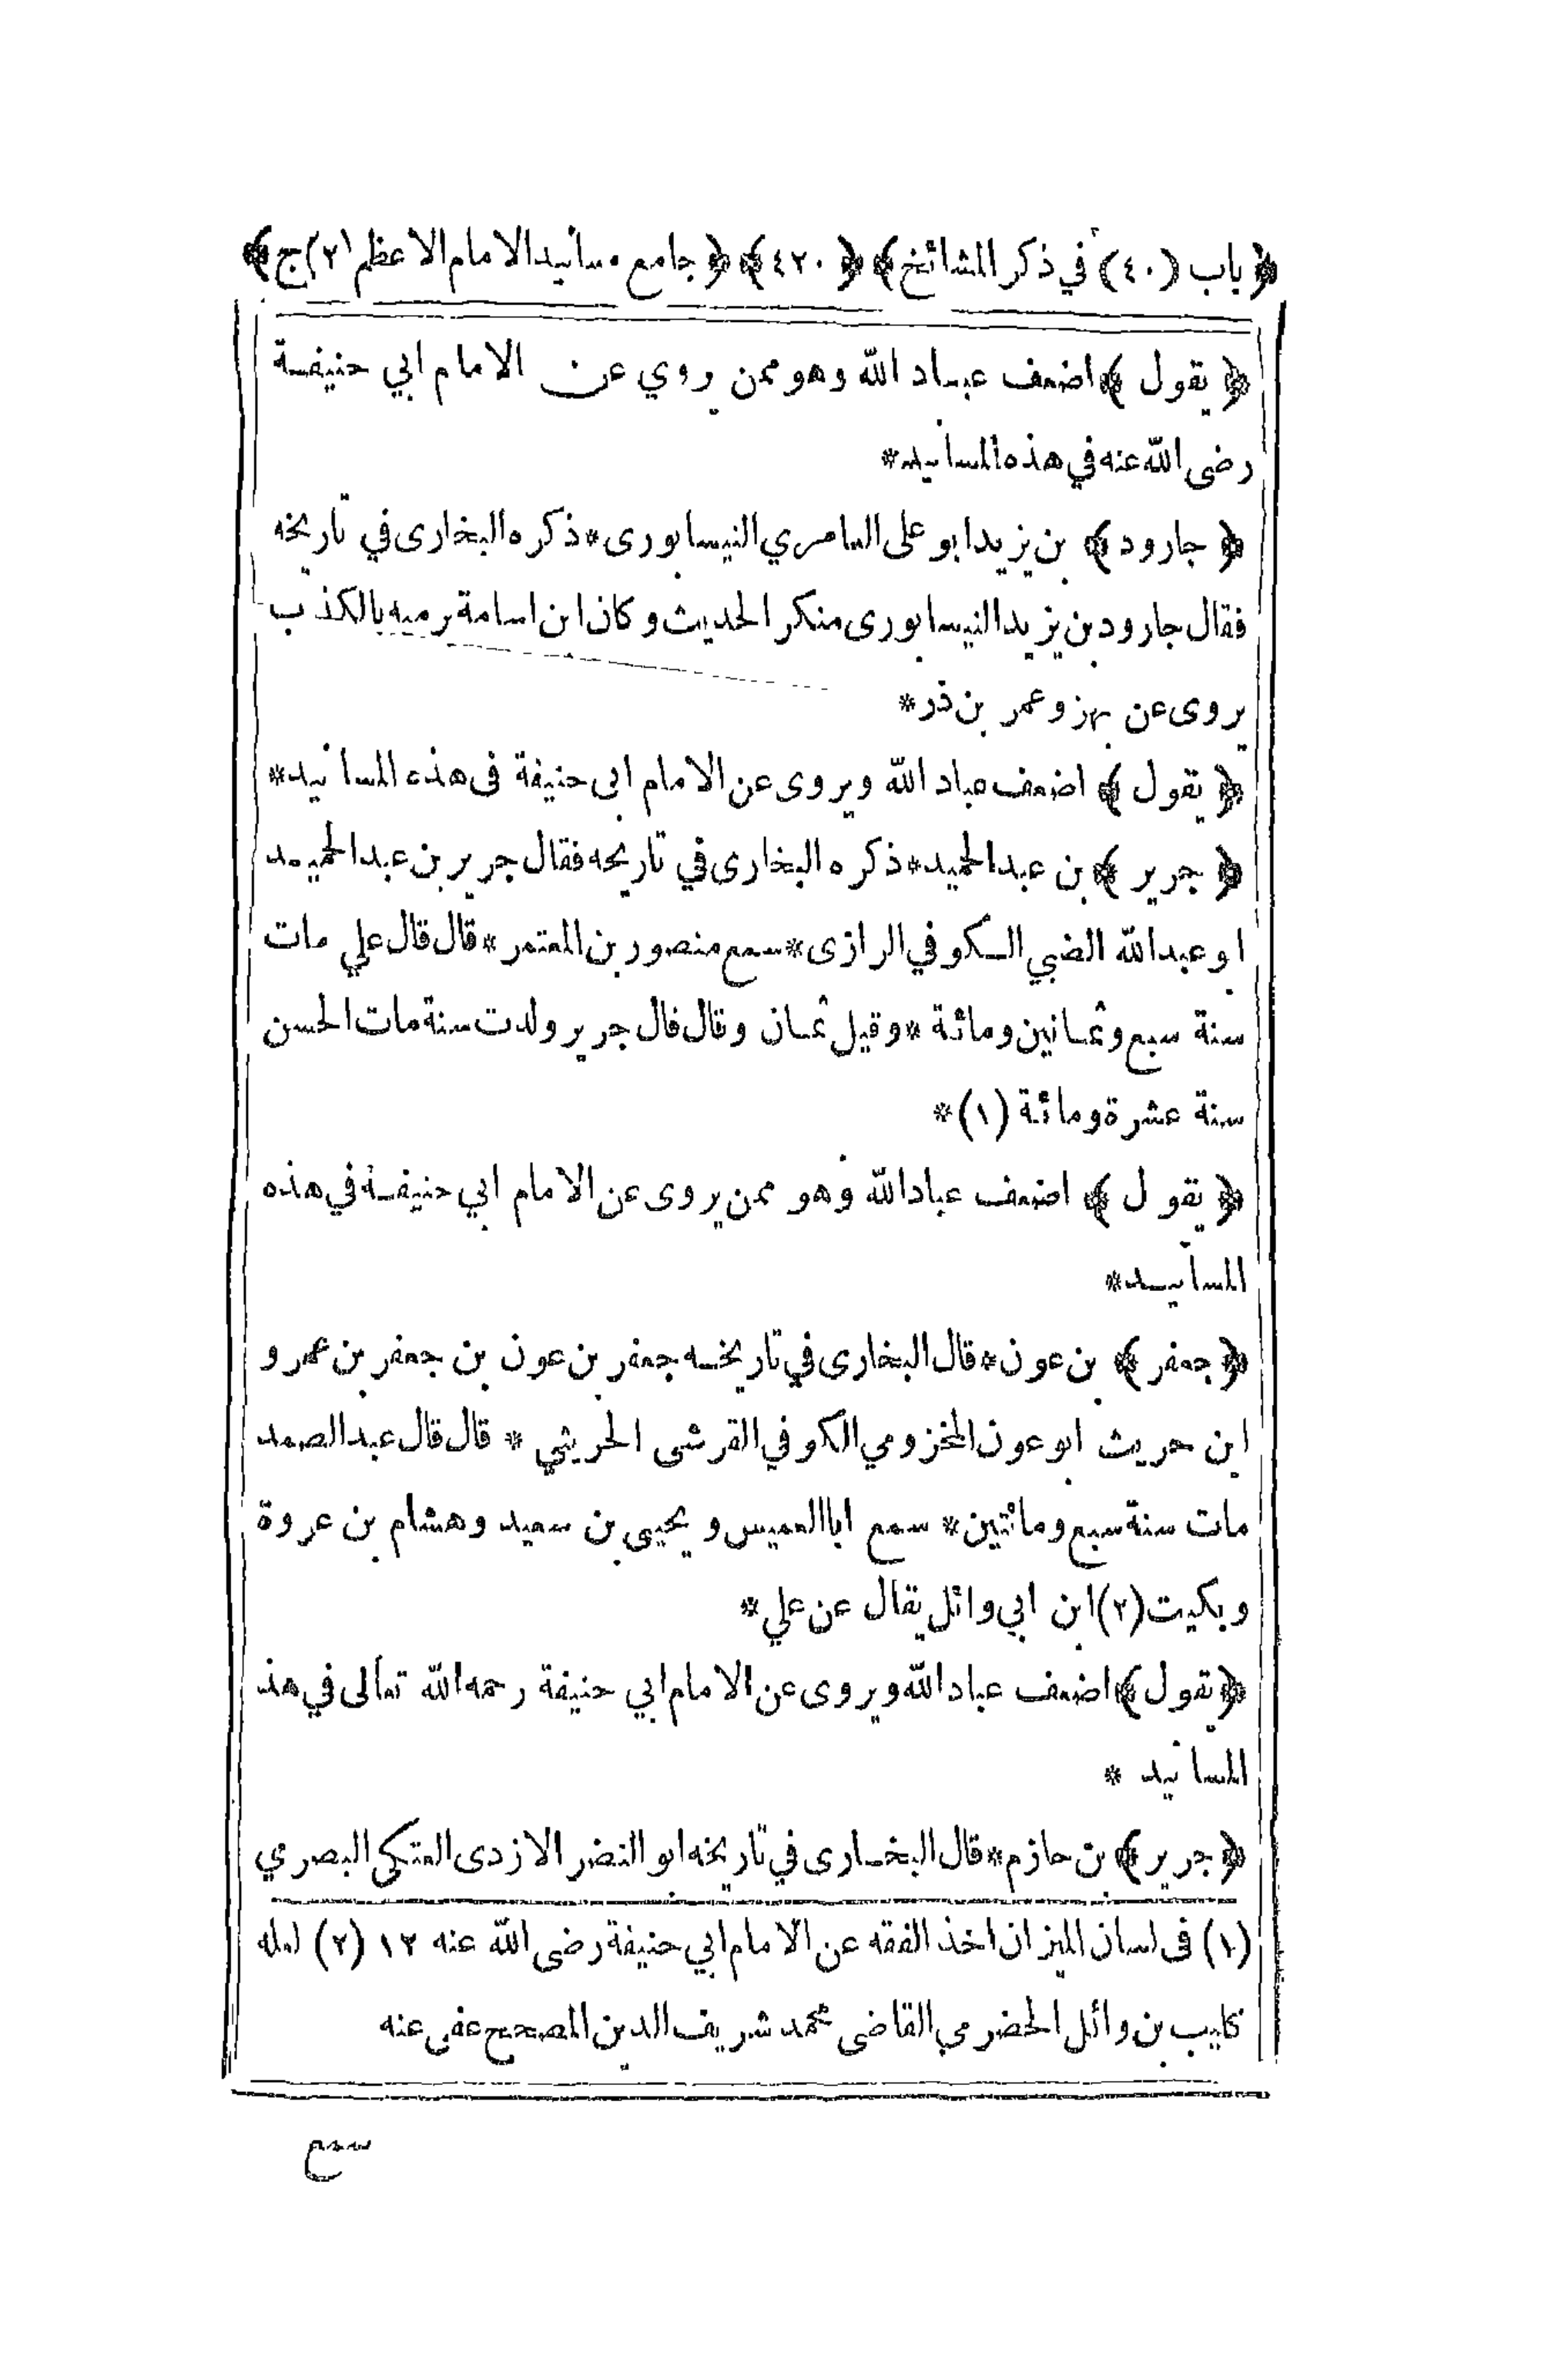 ﴿ باب (٤٠) في ذكر المشائخ ﴾ ﴿ ٤٢٠ ﴾ ﴿ جامع مسانيد الامام الاعظم (٢) ج ﴾
﴿ يقول ﴾ اضعف عباد الله وهو ممن روي عن الامام ابي حنيفة
رضى الله عنه في هذه المسانيد *
﴿ جارود ﴾ بن يزيد ابو على العامري النيسابورى * ذكره البخارى في تاريخه
فقال جارود بن يزيد النيسابورى منكر الحديث وكان ابن اسامة يرميه بالكذب
يروى عن بهز وعمر بن ذر *
﴿ يقول ﴾ اضعف عباد الله ويروى عن الامام ابى حنيفة فى هذه المسانيد *
﴿ جرير ﴾ بن عبد الحميد * ذكره البخارى في تاريخه فقال جرير بن عبد الحميد
ابو عبد الله الضبي الكوفي الرازى * سمع منصور بن المعتمر * قال قال علي مات
سنة سبع وثمانين ومائة * وقيل ثمان وقال قال جرير ولدت سنة مات الحسن
سنة عشرة ومائة (١) *
﴿ يقول ﴾ اضعف عباد الله وهو ممن يروى عن الامام ابي حنيفة في هذه
المسانيد *
﴿ جعفر ﴾ بن عون * قال البخارى في تاريخه جعفر بن عون بن جعفر بن عمرو
ابن حريث ابو عون المخزومي الكوفي القرشى الحريثي * قال قال عبد الصمد
مات سنة سبع ومائتين * سمع ابا العميس ويحيى بن سعيد وهشام بن عروة
وبكيت (٢) ابن ابي وائل يقال عن علي *
﴿ يقول ﴾ اضعف عباد الله ويروى عن الامام ابي حنيفة رحمه الله تعالى في هذ
المسانيد *
﴿ جرير ﴾ بن حازم * قال البخارى في تاريخه ابو النضر الازدى العتكى البصري
(١) فى لسان الميزان اخذ الفقه عن الامام ابي حنيفة رضى الله عنه ١٢ (٢) لعله
كليب بن وائل الحضرمي القاضى محمد شريف الدين المصحح عفى عنه
سمع